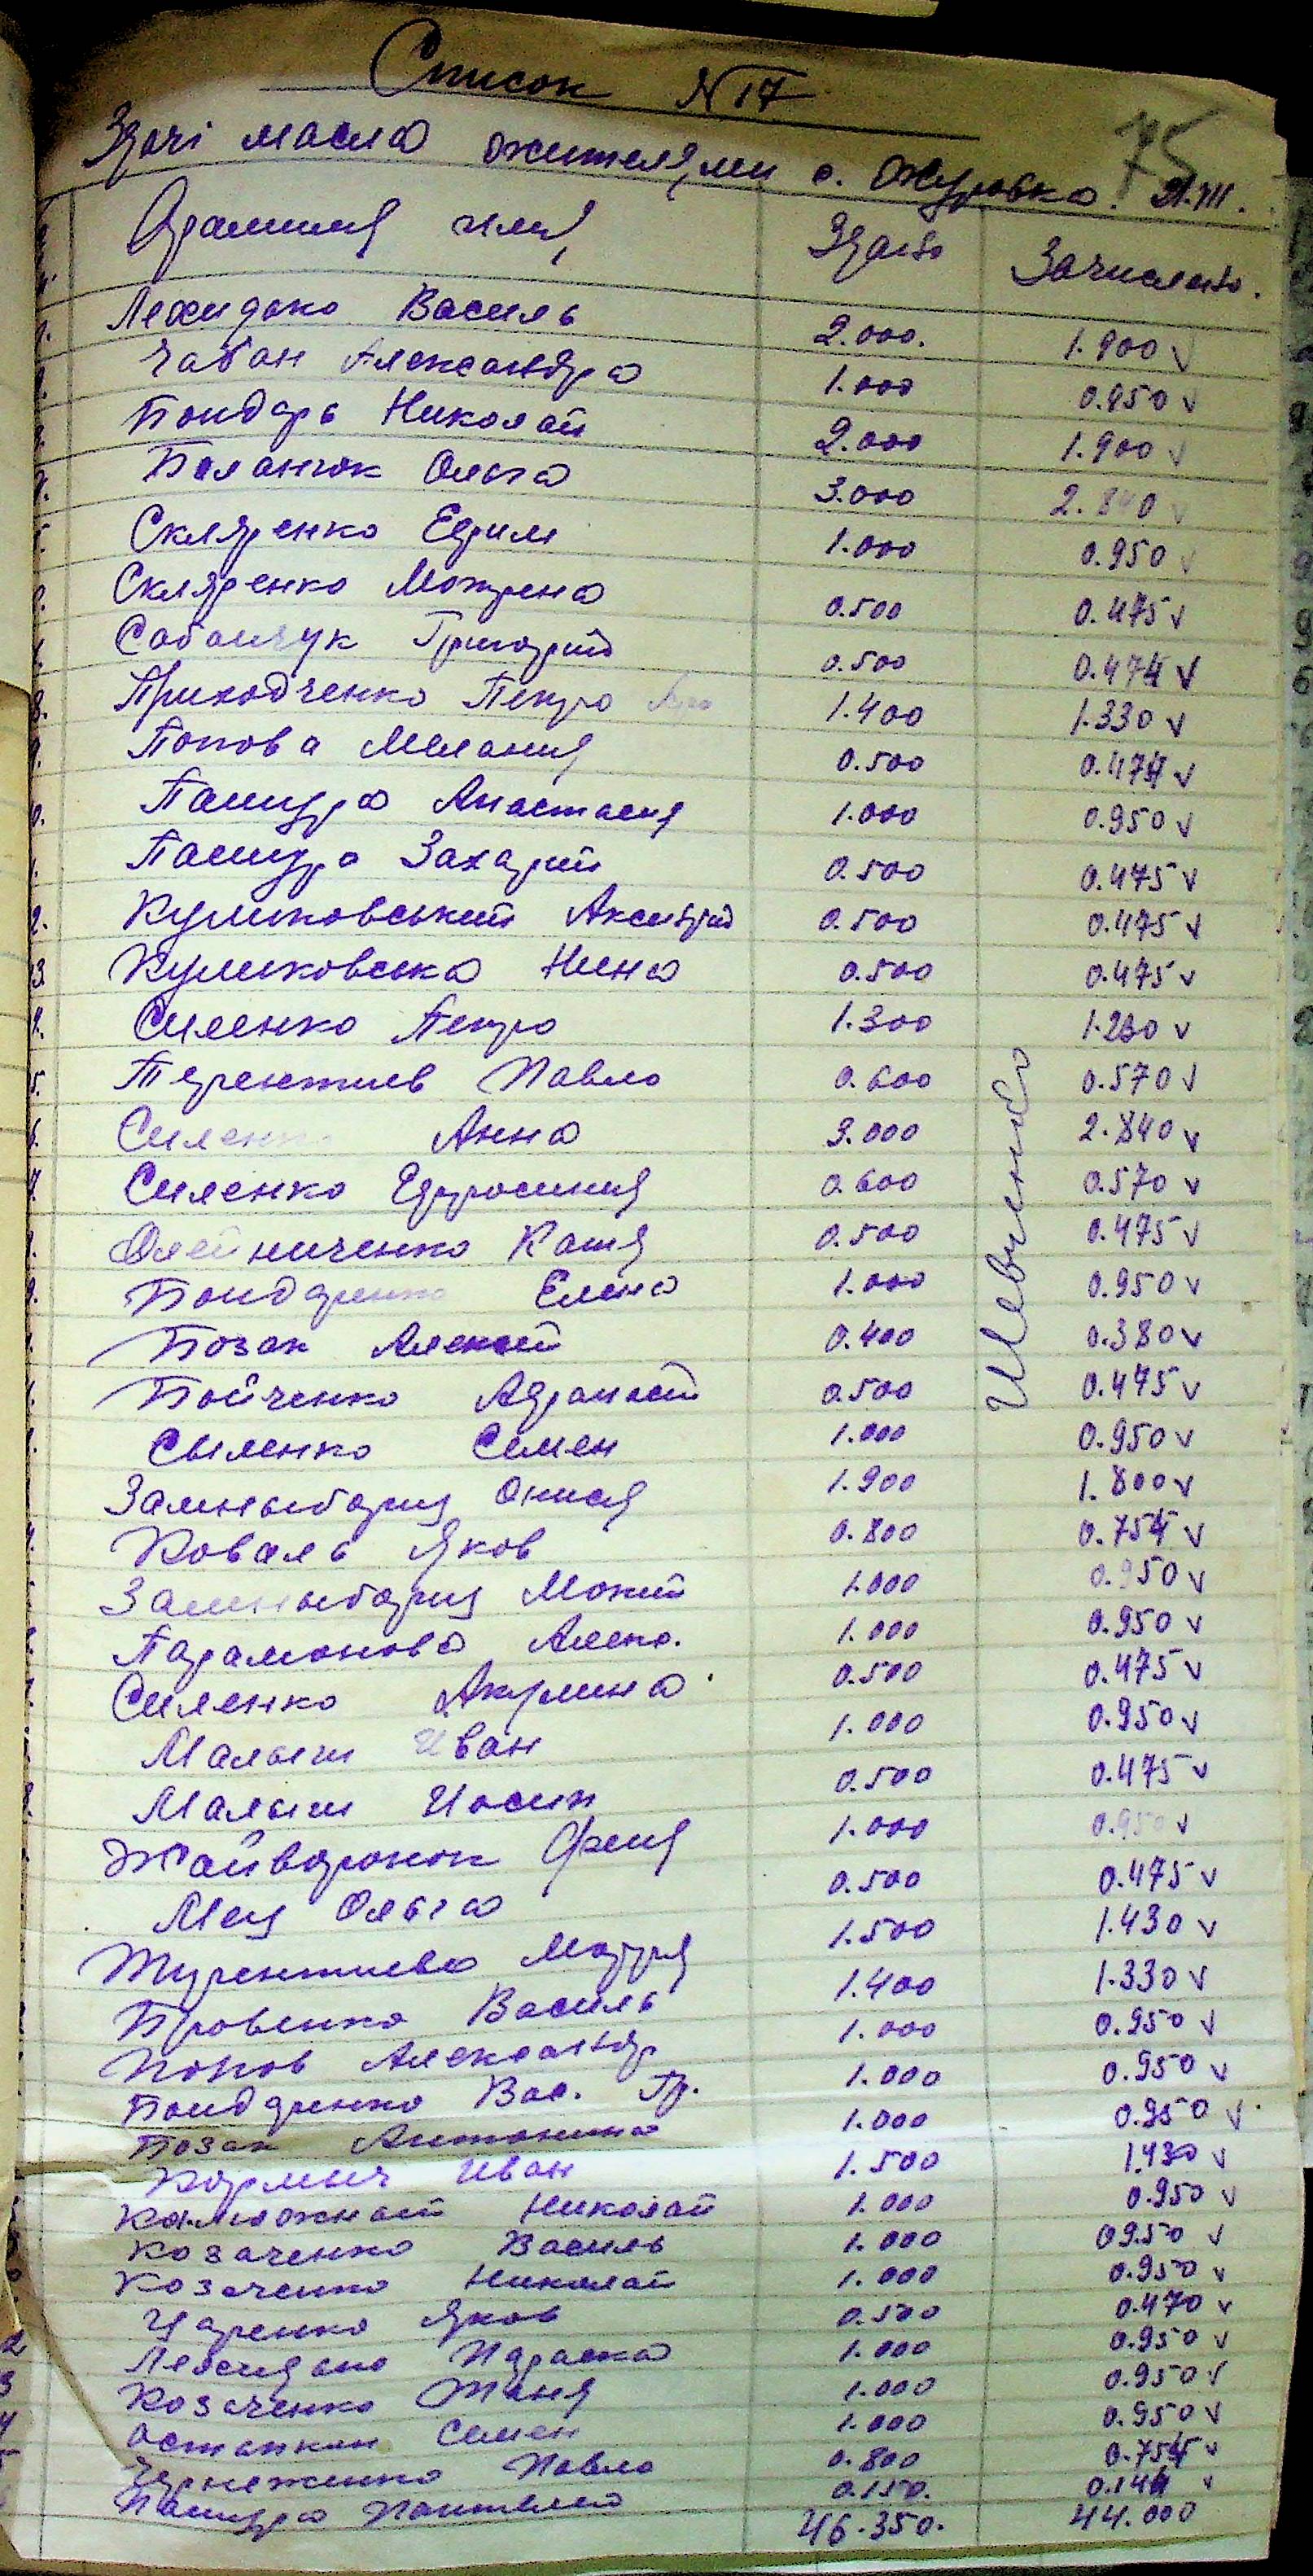 Список N 17
75
Здачі масла жителями с. Журовка. 21.III.
Фамилия имя Здано Зачислено.
1. Лехидако Василь 2.000. 1.900 v
Чабан Александра 1.000 0.950 v
Бондарь Николай 2.000 1.900 v
Ольга 3.000 2.840 v
Скляренко Ефим 1.000 0.950 v
Скляренко Мотрена 0.500 0.475 v
Григорий 0.500 0.474 v
8. Приходченко Петро 1.400 1.330 v
Попова Мелания 0.500 0.474 v
0. Пашура Анастасия 1.000 0.950 v
Пашура Захарий 0.500 0.475 v
2. Куликовський 0.500 0.475 v
3. Куликовська Нина 0.500 0.475 v
Силенко Петро 1.300 1.230 v
5. Терентиев Павло 0.600 0.570 v
Силенко Анна 3.000 2.840 v
Силенко Ефросиния 0.600 0.570 v
Олейниченко Катя 0.500 0.475 v
Бондаренко Елена 1.000 0.950 v
Шевченко
Бозак Алексей 0.400 0.380 v
Бойченко 0.500 0.475 v
Сыленко Семен 1.000 0.950 v
Замныборщ Онися 1.900 1.800 v
Коваль Яков 0.800 0.754 v
Замныборщ Мокий 1.000 0.950 v
Парамонова Алекс. 1.000 0.950 v
Силенко Акулина 0.500 0.475 v
Малыш Иван 1.000 0.950 v
Малыш Иосип 0.500 0.475 v
Жайворонок Феня 1.000 0.950 v
Мец Ольга 0.500 0.475 v
Терентиева Мария 1.500 1.430 v
Василь 1.400 1.330 v
Попов Александр 1.000 0.950 v
Бондаренко Вас. Гр. 1.000 0.950 v
Бозак Антонина 1.000 0.950 v
Иван 1.500 1.430 v
Николай 1.000 0.950 v
Козаченко Василь 1.000 0950 v
Козаченко Николай 1.000 0.950 v
Царенко Яков 0.500 0.470 v
2 Лехидако Параска 1.000 0.950 v
3 Козаченко Таня 1.000 0.950 v
4 Остапкин Семен 1.000 0.950 v
5 Павло 0.800 0.754 v
Пашура 0.150. 0.144 v
46.350. 44.000